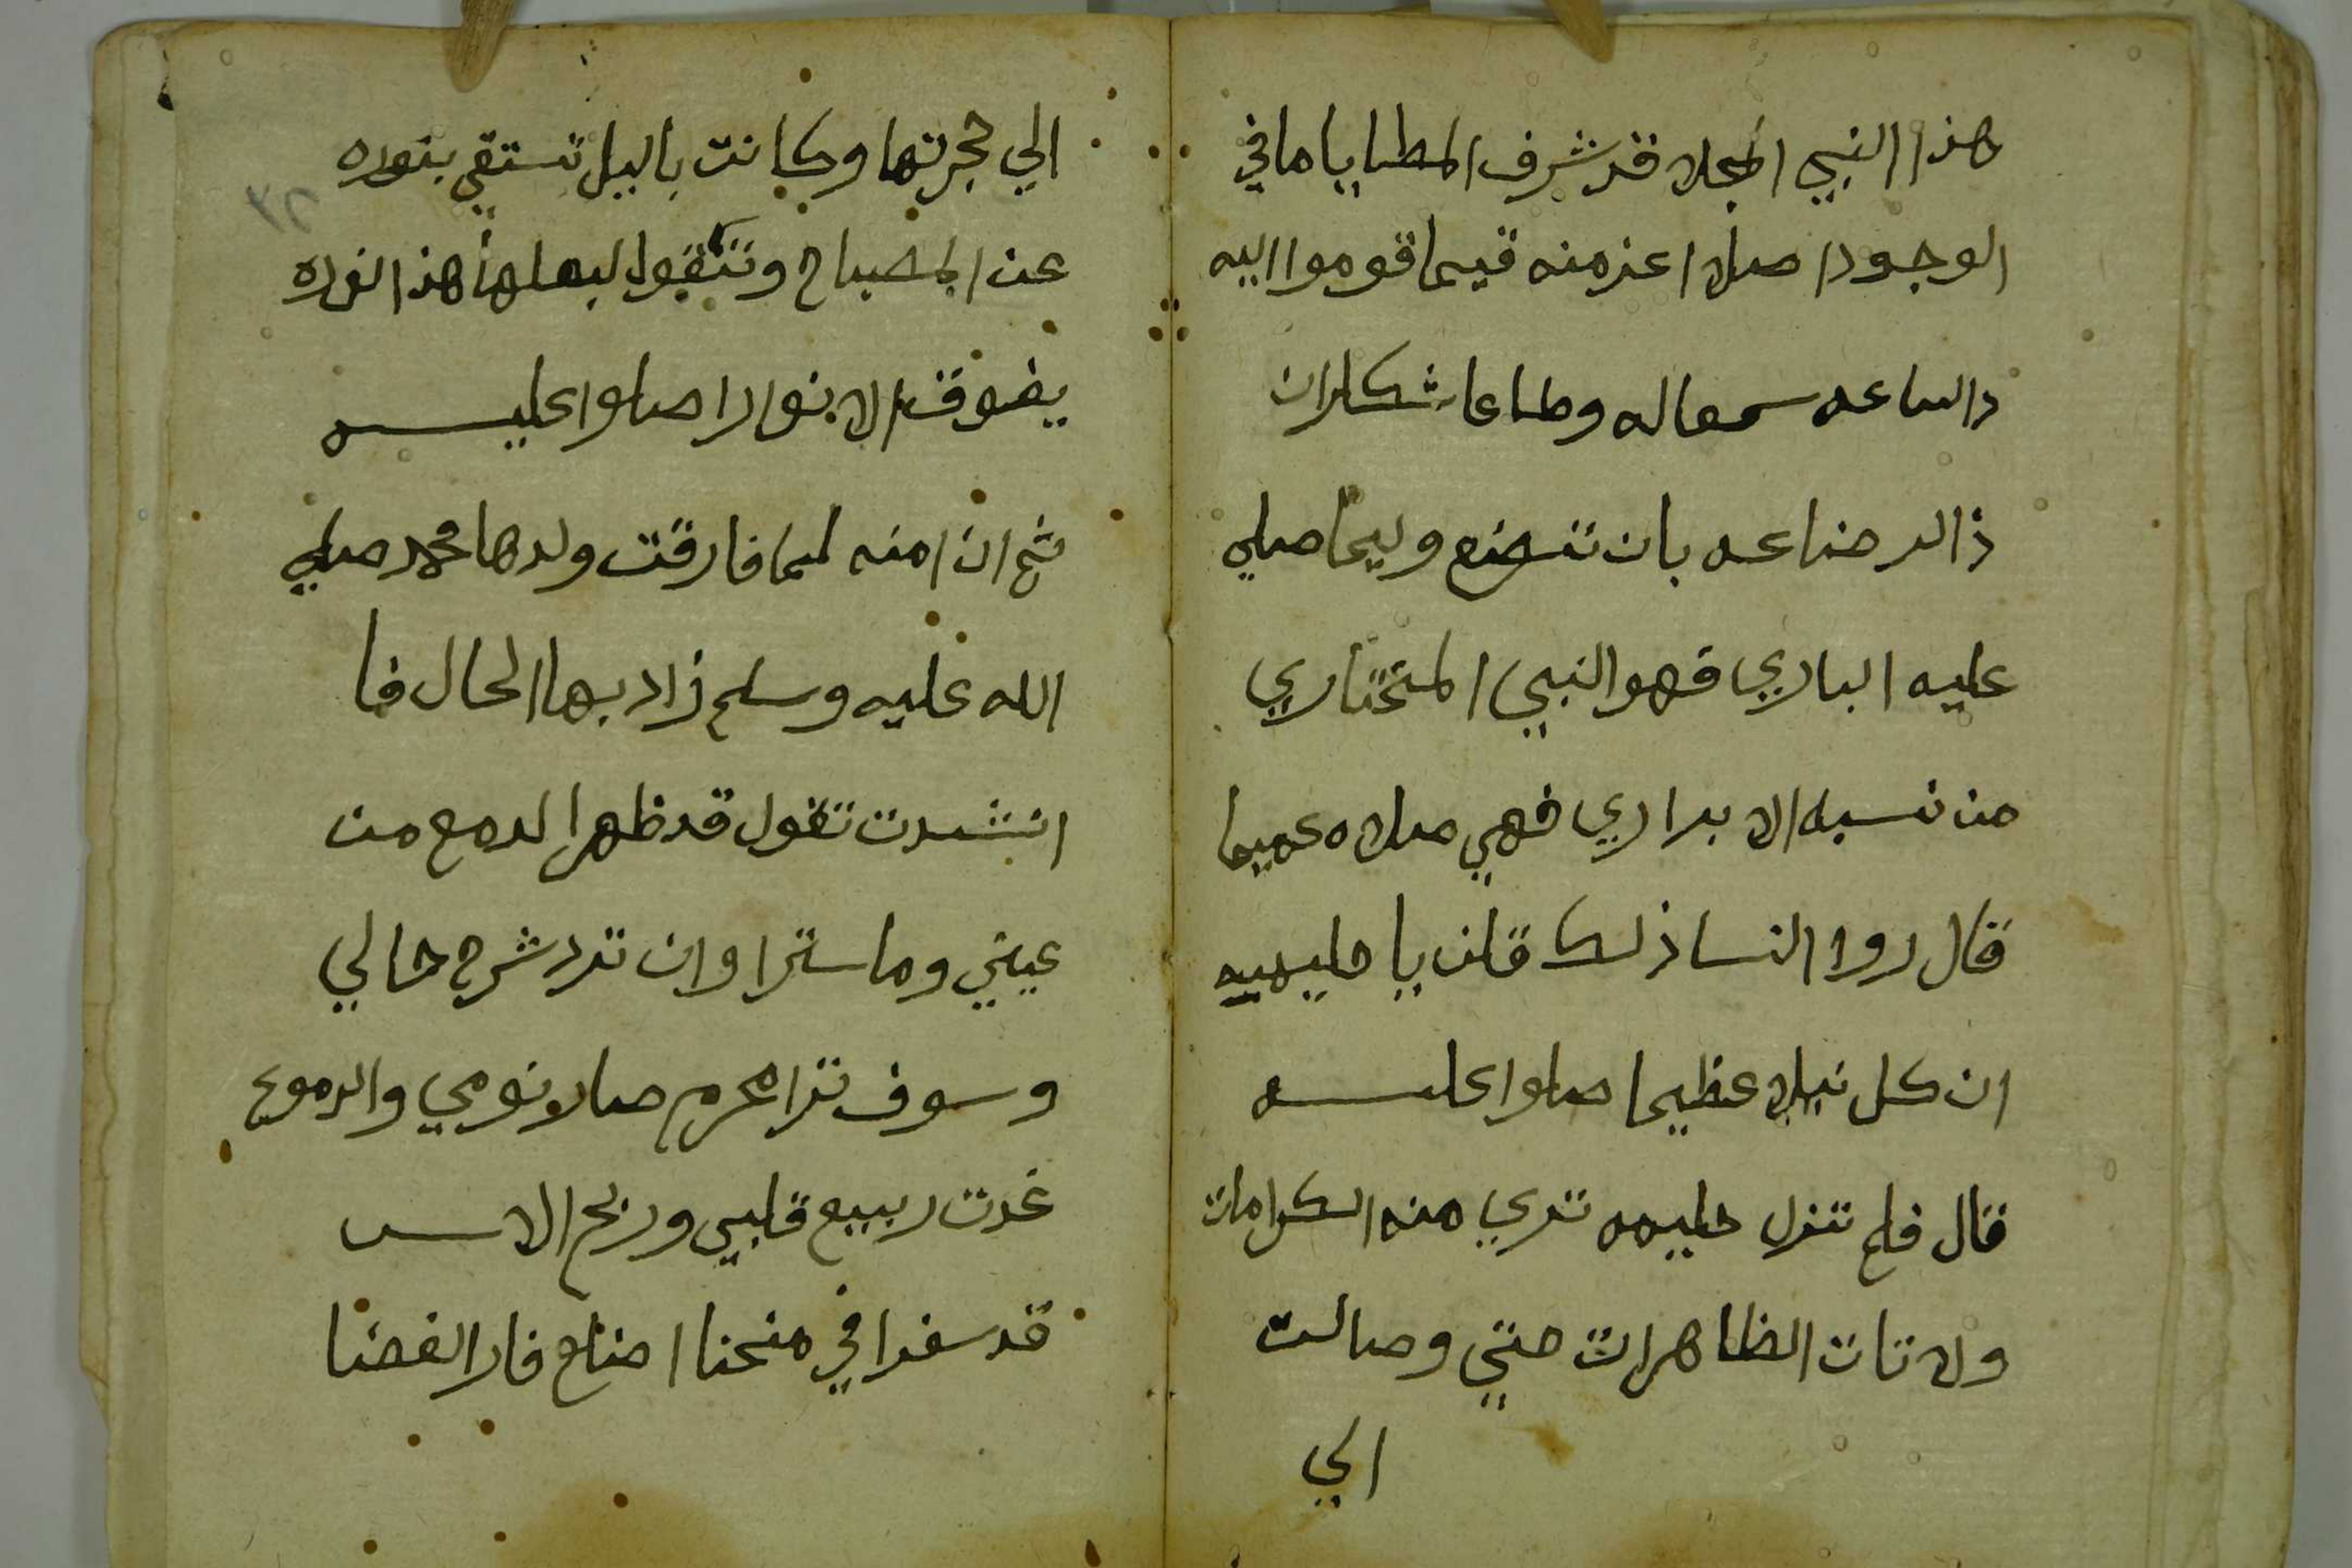 هذا النبي المجلا قد شرف المطايا ما في
الوجود اصلا اعز منه قيما قوموا اليه
دالساعه سمعا له وطاعا شكاران
ذا الرضاعه بان تضع وليما صلي
عليه الباري فهو النبي المختاري
من نسبه الابراري فهي صلاه عميما
قال روا النسا ذلك قلن يا حليميه
ان كل نيلا عظيما صلوا عليه
قال فلم تزل حليمه تري منه الكرامات
ولا تات الظاهرات حتي وصالت
الي
الي حجرتها وكانت باليل تستقي بنوره
عن المصباح وتقول لبعلها هذا النوره
يفوق الانوارا صلوا عليه
ثم ان امنه لما فارقت ولدها محمد صلي
الله عليه وسلم زاد بها الحال فا
انشدت تقول قد ظهر الدمع من
عيني وما سترا وان ترد شرح حالي
وسوف ترا محرم صار نومي والدموع
غدت ربيع قلبي وربح الاسـ
قد سفرا في منحنا اضلع فار الفضا
٢٣